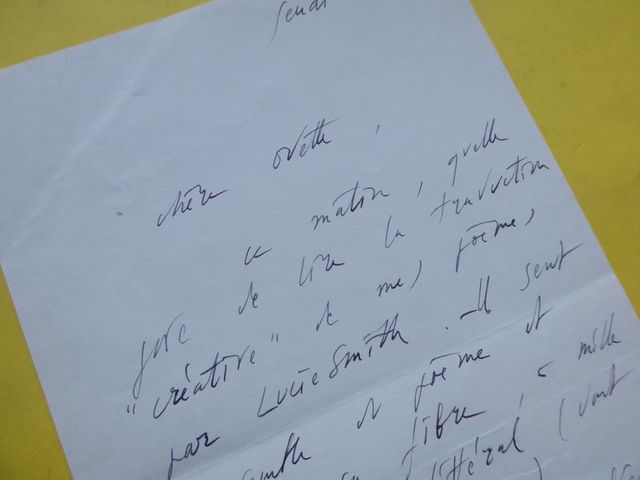 Jeudi
chère Odette,
ce matin, quelle
joie de lire la traduction
"créative" de mes poèmes,
par Lucie Smith. Il sent
et poème et
libre, à mille
littéral (vont